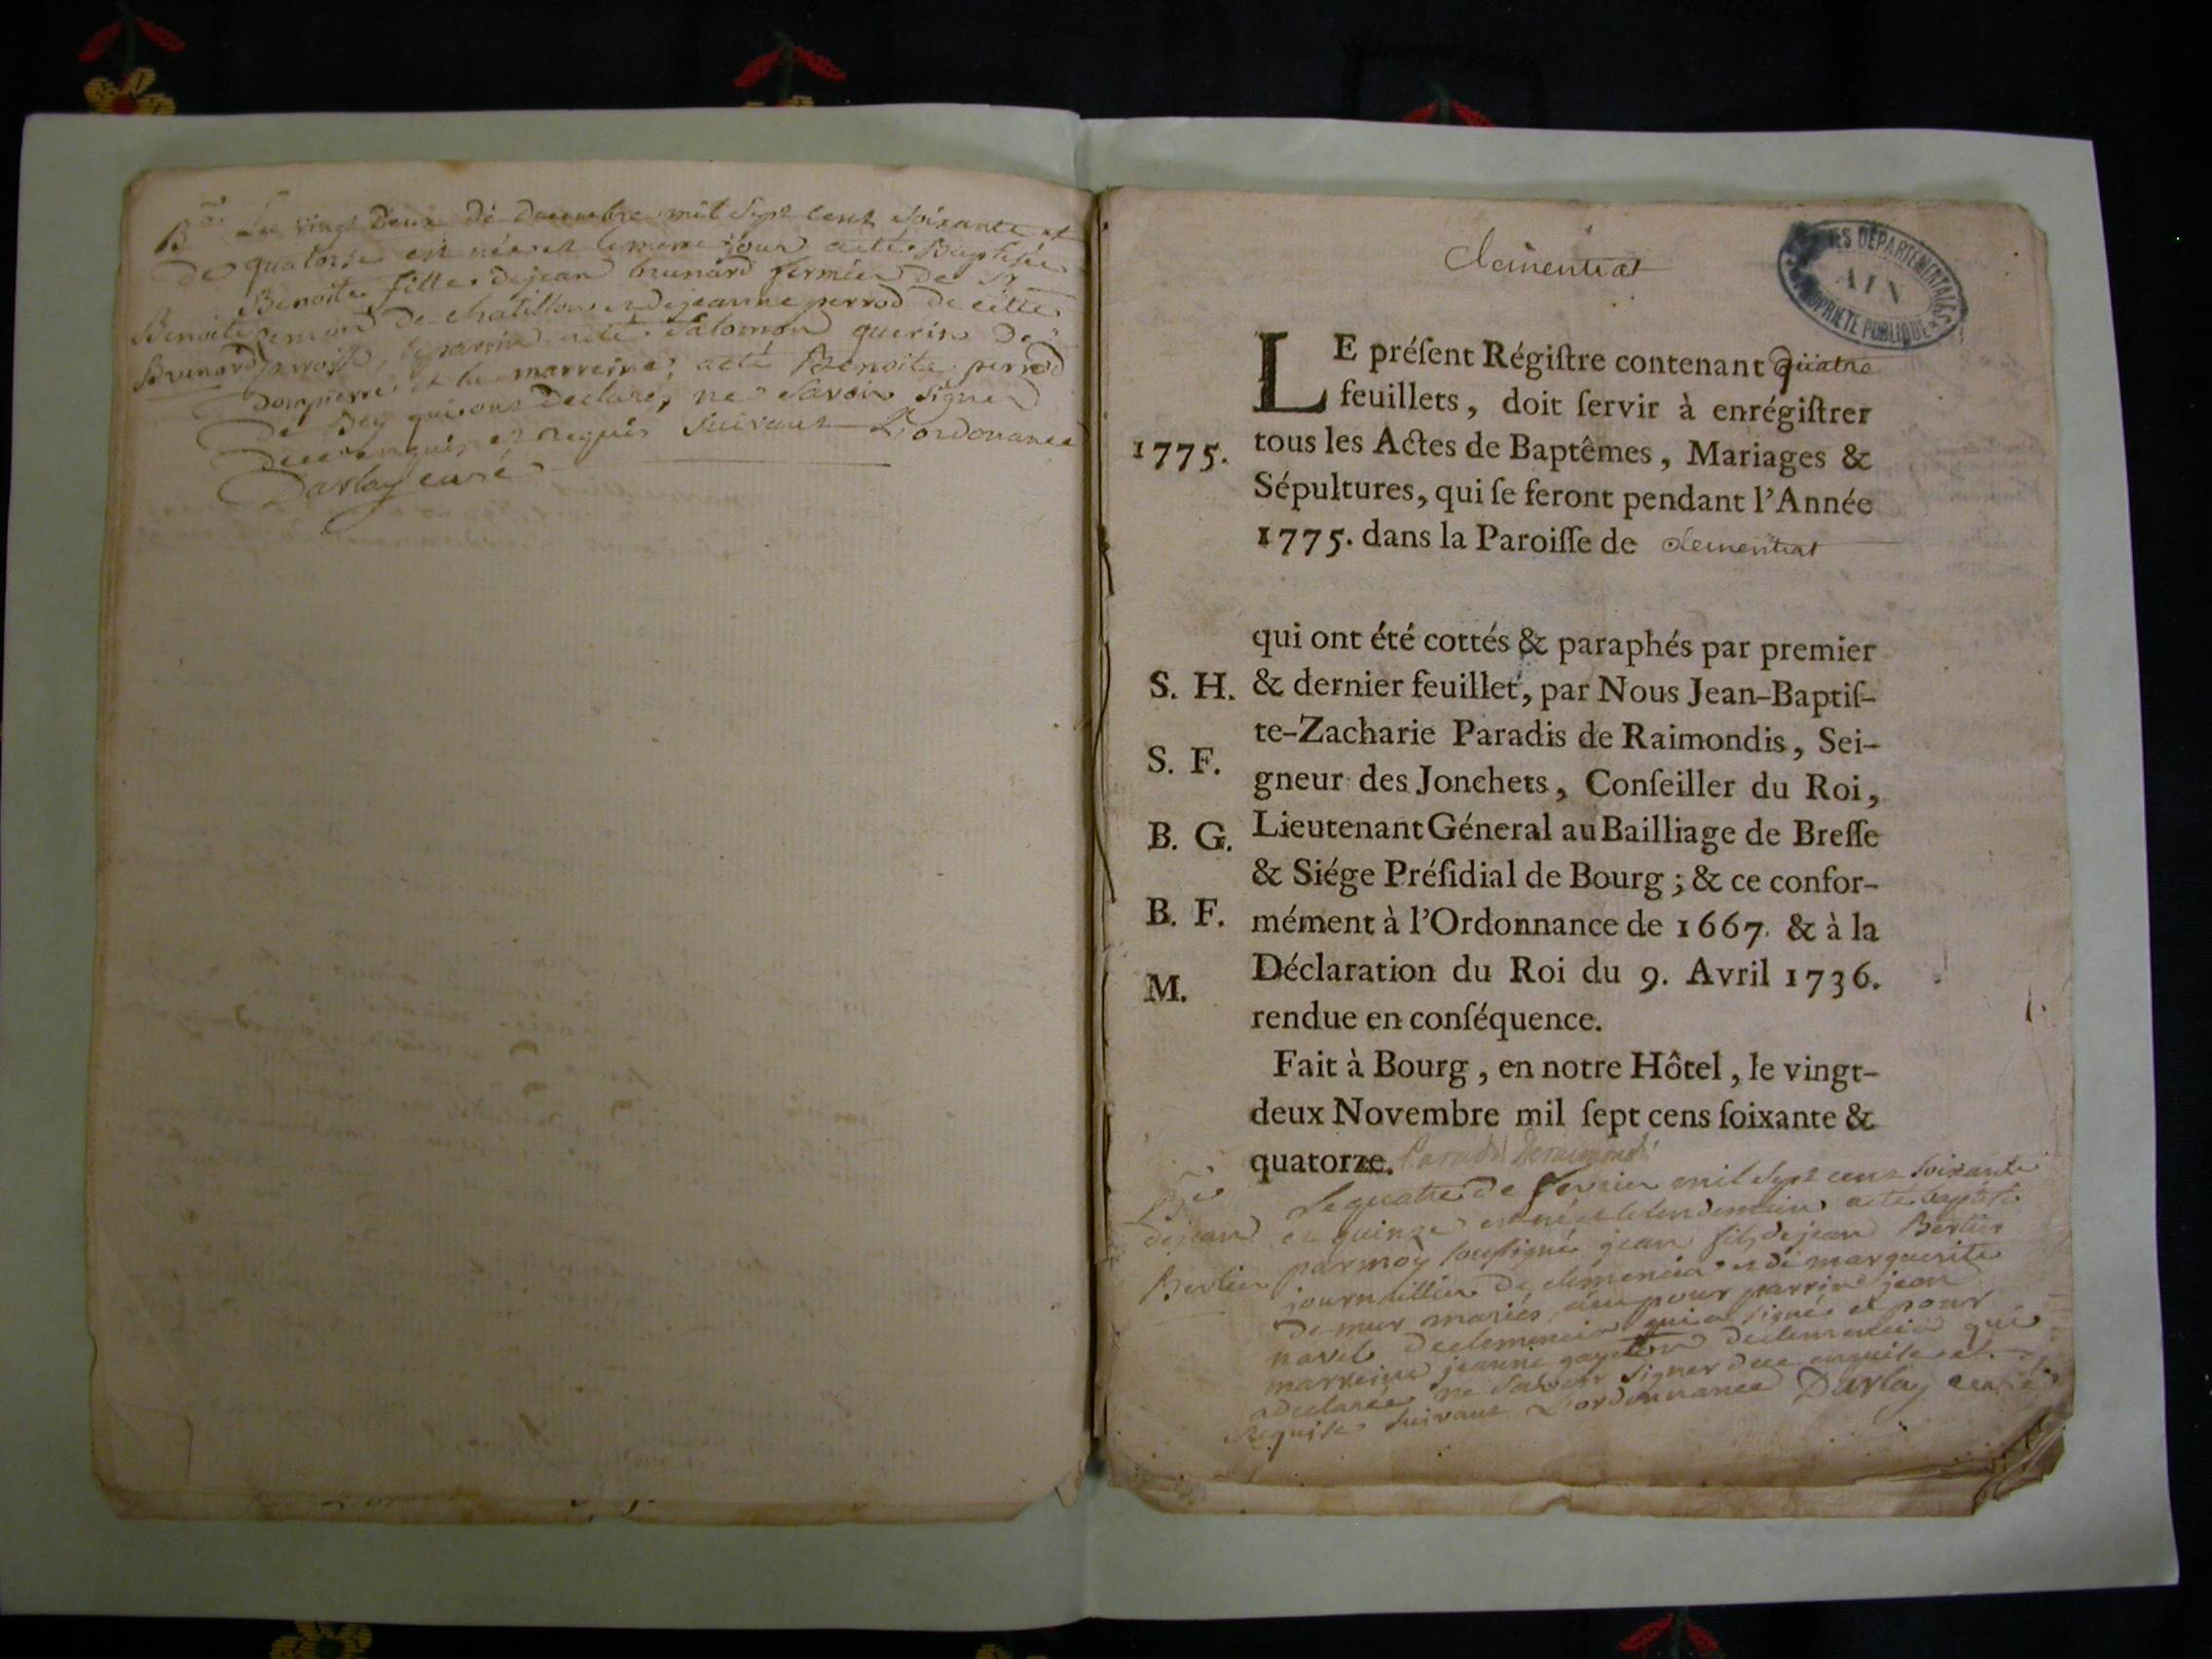 B.e Le vingt Deux de decembre mil Sept cent Soixante et
De quatorse est née et le meme jour a eté Baptisée
Benoite fille de jean brunard fermier de Mr
Benoite De chatillon et de jeanne perrod de cette
Brunard parroisse, le parrin a eté Salomon guerin de
Dompierre et la marreine a eté Benoite perrod
De Bey qui ont Declaré, ne Savoir Signer
De ce enquis et requis Suivant L'ordonance
Darlay curé
clementiat
ARCHIVES DÉPARTEMENTALES
AIN
PROPRIÉTÉ PUBLIQUE
LE préſent Régiſtre contenant quatre
feuillets, doit ſervir à enrégiſtrer
1775. tous les Actes de Baptêmes, Mariages &
Sépultures, qui ſe feront pendant l'Année
1775. dans la Paroiſſe de clementiat
qui ont été cottés & paraphés par premier
S. H. & dernier feuillet, par Nous Jean-Baptiſ-
te-Zacharie Paradis de Raimondis, Sei-
S. F.
gneur des Jonchets, Conſeiller du Roi,
B. G. Lieutenant Géneral au Bailliage de Breſſe
& Siége Préſidial de Bourg ; & ce confor-
B. F. mément à l'Ordonnance de 1667. & à la
Déclaration du Roi du 9. Avril 1736.
M.
rendue en conſéquence.
1.
Fait à Bourg, en notre Hôtel, le vingt-
deux Novembre mil ſept cens ſoixante &
quatorze. Paradis Deraimondis
B.e Le quatre de fevrier mil Sept cent Soixante
de jean et quinze est né et le lendemain a eté baptisé
Bertier par moy soussigné jean fils de jean Bertier
journallier de clemencia et de marguerite
De mur mariés, a eu pour parrin jean
navel declemencia qui a signé et pour
marreine jeanne declemencia qui
a declarée ne Savoir Signer de ce enquise et
Requise Suivant L'ordonnance Darlay curé